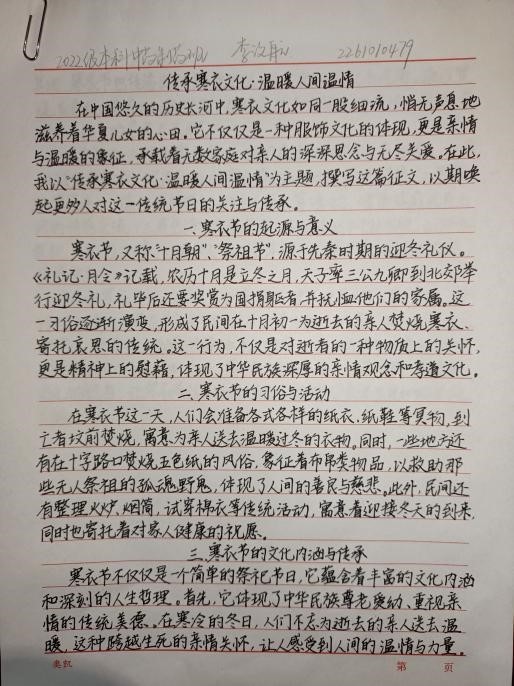 2022级本科中药制药班 李汶航 2261010479
传承寒衣文化·温暖人间温情
在中国悠久的历史长河中,寒衣文化如同一股细流,悄无声息地
滋养着华夏儿女的心田。它不仅仅是一种服饰文化的体现,更是亲情
与温暖的象征,承载着无数家庭对亲人的深深思念与无尽关爱。在此,
我以"传承寒衣文化·温暖人间温情"为主题,撰写这篇征文,以期唤
起更多人对这一传统节日的关注与传承。
一、寒衣节的起源与意义
寒衣节,又称"十月朝"、"祭祖节",源于先秦时期的迎冬礼仪。
《礼记·月令》记载,农历十月是立冬之月,天子率三公九卿到北郊举
行迎冬礼,礼毕后还要奖赏为国捐躯者,并抚恤他们的家属。这
一习俗逐渐演变,形成了民间在十月初一为逝去的亲人焚烧寒衣、
寄托哀思的传统。这一行为,不仅是对逝者的一种物质上的关怀,
更是精神上的慰藉,体现了中华民族深厚的亲情观念和孝道文化。
二、寒衣节的习俗与活动
在寒衣节这一天,人们会准备各式各样的纸衣、纸鞋等冥物,到
亡者坟前焚烧,寓意为亲人送去温暖过冬的衣物。同时,一些地方还
有在十字路口焚烧五色纸的风俗,象征着布帛类物品,以救助那
些无人祭祖的孤魂野鬼,体现了人间的善良与慈悲。此外,民间还
有整理火炉、烟筒,试穿棉衣等传统活动,寓意着迎接冬天的到来,
同时也寄托着对家人健康的祝愿。
三、寒衣节的文化内涵与传承
寒衣节不仅仅是一个简单的祭祀节日,它蕴含着丰富的文化内涵
和深刻的人生哲理。首先,它体现了中华民族尊老爱幼、重视亲
情的传统美德。在寒冷的冬日,人们不忘为逝去的亲人送去温
暖,这种跨越生死的亲情关怀,让人感受到人间的温情与力量。
奥凯 第 页